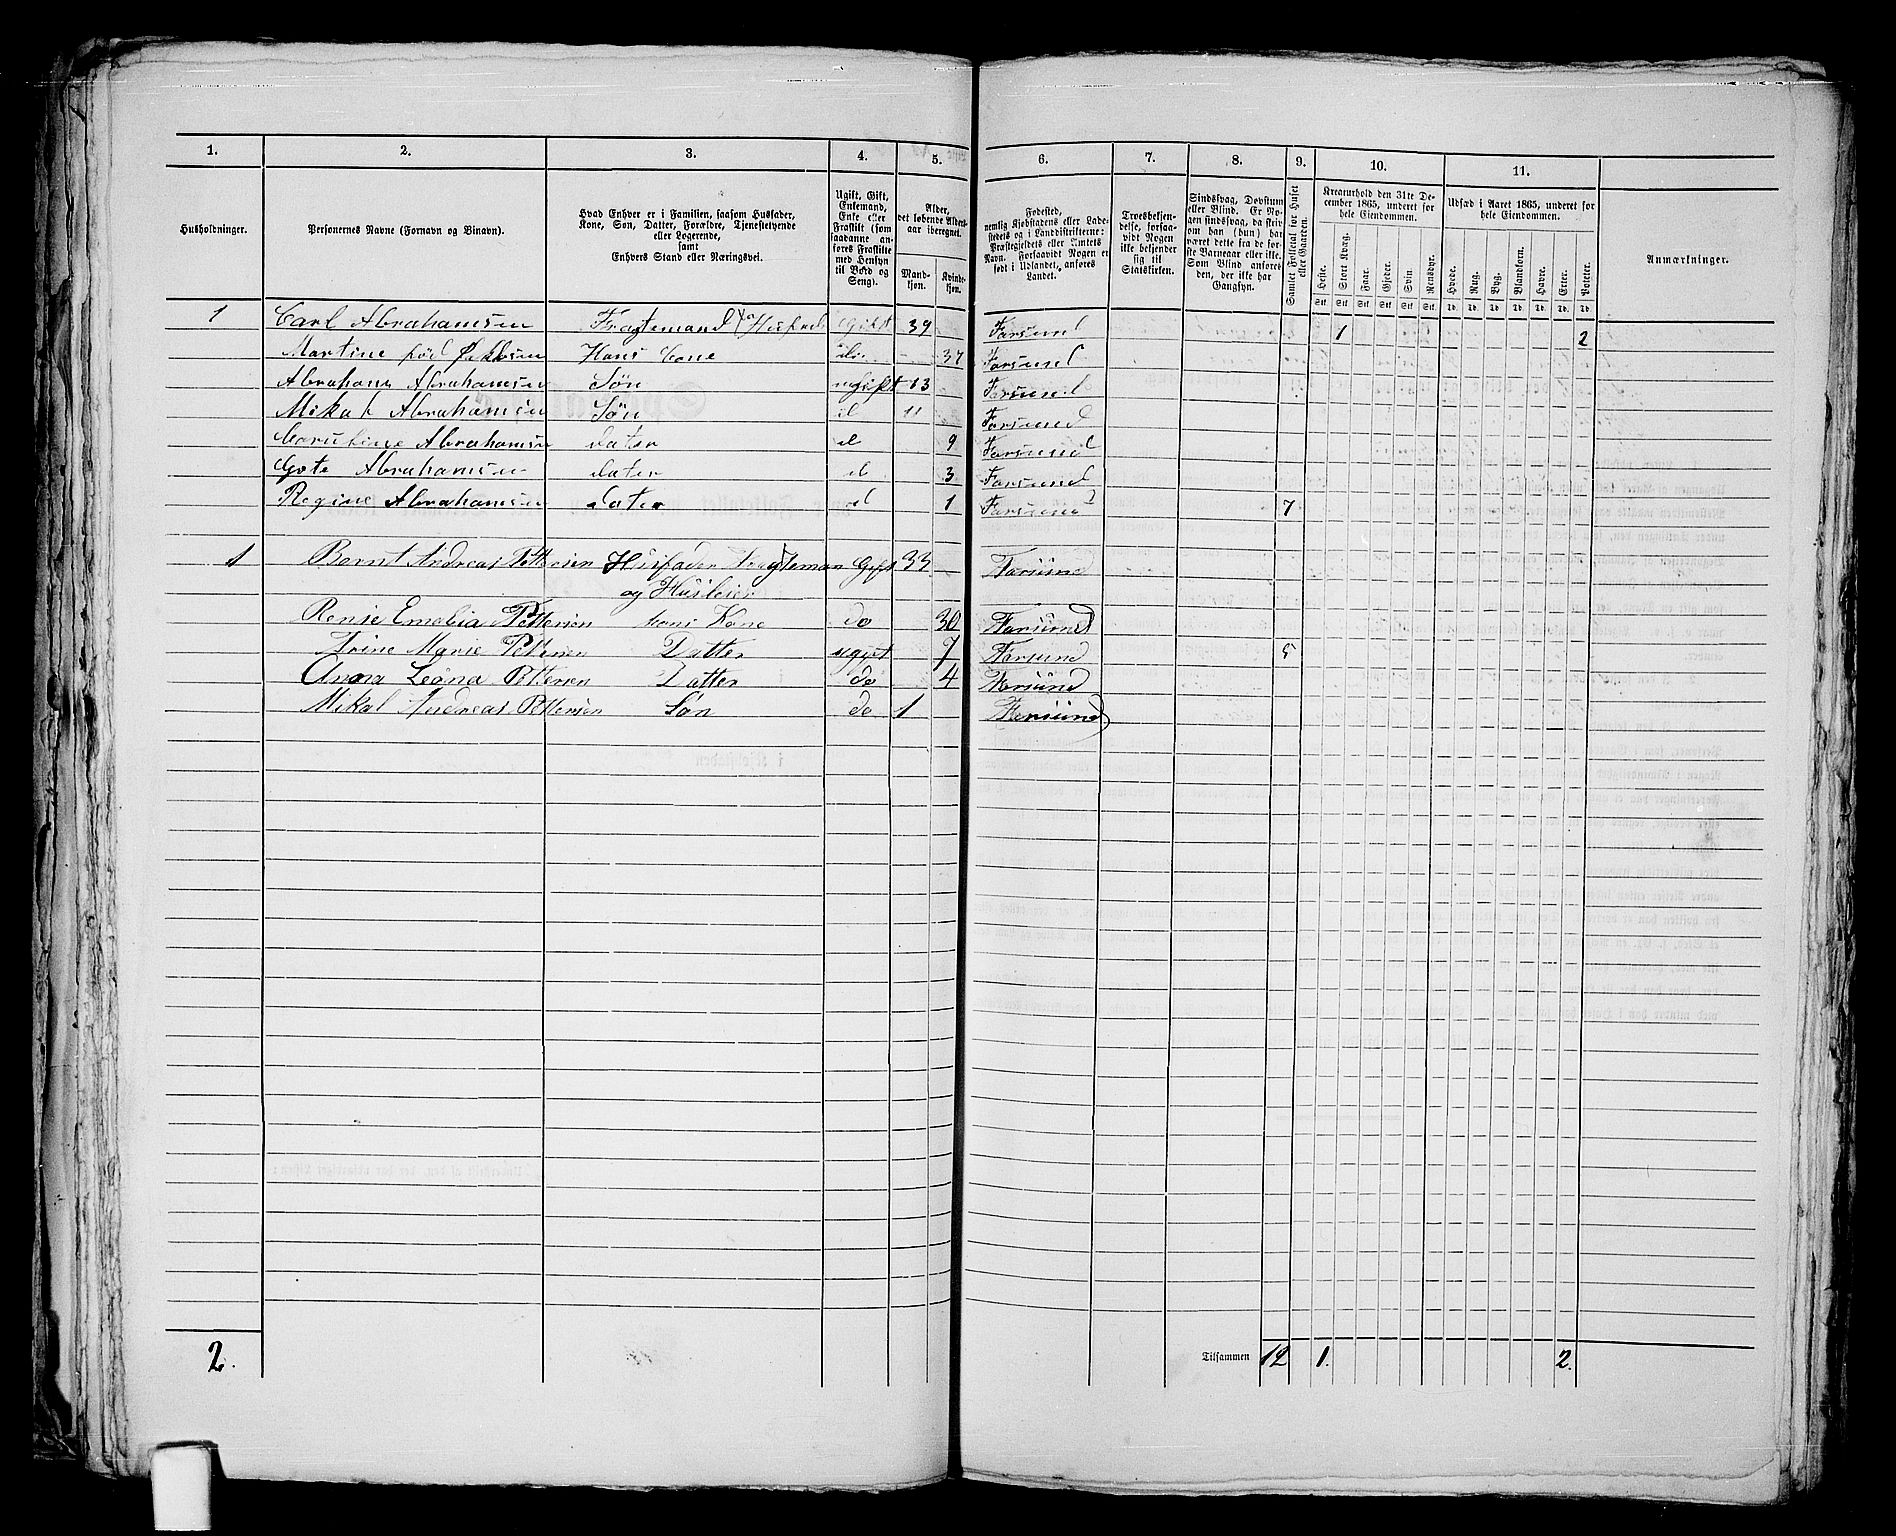 1. 2. 3. 4. 5. 6. 7. 8. 9. 10. 11.
Husholdninger.
Personernes Navne (Fornavn og Binavn).
Hvad Enhver er i Familien, saasom Husfader,
Kone, Søn, Datter, Forældre, Tjenestetyende
eller Logerende,
samt
Enhvers Stand eller Næringsvei.
Ugift, Gift,
Enkemand,
Enke eller
Fraskilt (som
saadanne an-
føres Fraskilte
med Hensyn
til Bord og
Seng).
Alder,
det løbende Alders-
aar iberegnet.
Mand-
kjøn.
Kvinde-
kjøn.
Fødested,
nemlig Kjøbstadens eller Lade-
stedets og i Landdistrikterne:
Præstegjeldets eller Amtets
Navn. Forsaavidt Nogen er
født i Udlandet, anføres
Landet.
Troesbekjen-
delse, forsaa-
vidt Nogen
ikke bekjender
sig til
Statskirken.
Sindssvag, Døvstum
eller Blind. Er No-
gen sindssvag, da skri-
ves om han (hun) har
været dette fra de før-
ste Barneaar eller ikke.
Som Blind anføres
den, der ikke har
Gangsyn.
Samlet Folketal for Huset
eller Gaarden.
Kreaturhold den 31te De-
cember 1865, underet for
hele Eiendommen.
Heste. Stort Kvæg. Faar. Gjeder. Svin. Rensdyr.
Stk Stk Stk Stk Stk Stk
Udsæd i Aaret 1865, underet for
hele Eiendommen.
Hvede. Rug. Byg. Blandkorn. Havre. Erter. Poteter.
Td. Td. Td. Td. Td. Td. Td.
Anmærkninger.
1 Carl Abrahamsen Fragtemand Gift 39 Farsund 1 2
Martine fød Hans Cone do 37 Farsund
Abraham Abrahamsen Søn ugift 13 Farsund
Mikal Abrahamsen Søn d 11 Farsund
Abrahamsen dater d 9 Farsund
Abrahamsen dater d 3 Farsund
Regine Abrahamsen dater d 1 Farsund 7
1 Bernt Andreas Pettersen Husfader Fragteman Gift 33 Farsund
og Huseier
Emelia Pettersen hans Kone do 30 Farsund
Trine Marie Pettersen Datter ugift 7 Farsund 5
Anna Leona Pettersen Datter do 4 Farsund
Mikal Andreas Pettersen Søn do 1 Farsund
2. Tilsammen 12 1. 2.